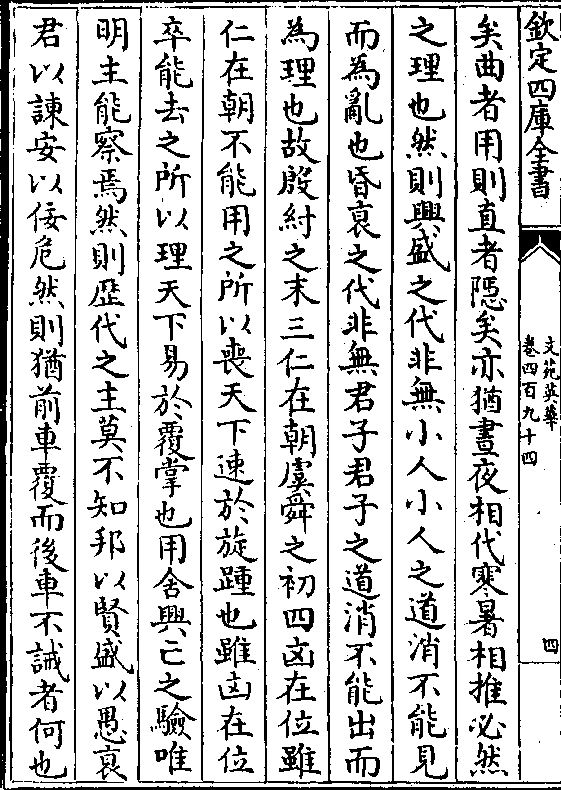 欽定四庫全書
文苑英華
卷四百九十四
四
矣曲者用則直者隱矣亦猶晝夜相代寒暑相推必然
之理也然則興盛之代非無小人小人之道消不能見
而為亂也昏衰之代非無君子君子之道消不能出而
為理也故殷紂之末三仁在朝虞舜之初四凶在位雖
仁在朝不能用之所以喪天下速於旋踵也雖凶在位
卒能去之所以理天下易於覆掌也用舍興亡之驗唯
明主能察焉然則歴代之主莫不知邦以賢盛以愚衰
君以諫安以佞危然則猶前車覆而後車不誡者何也